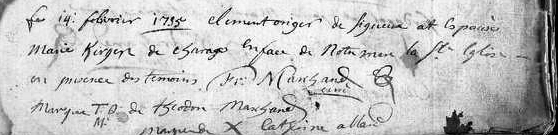 Le 14: febvrier 1735 clement onger de siqueve at Espousé
Marie Kirgen de charage Enface de Notre mere la Ste Eglise
en presence des temoins Fr: Marchand
Marque T.O de theodon Marchand
Marque de X Catherine allard